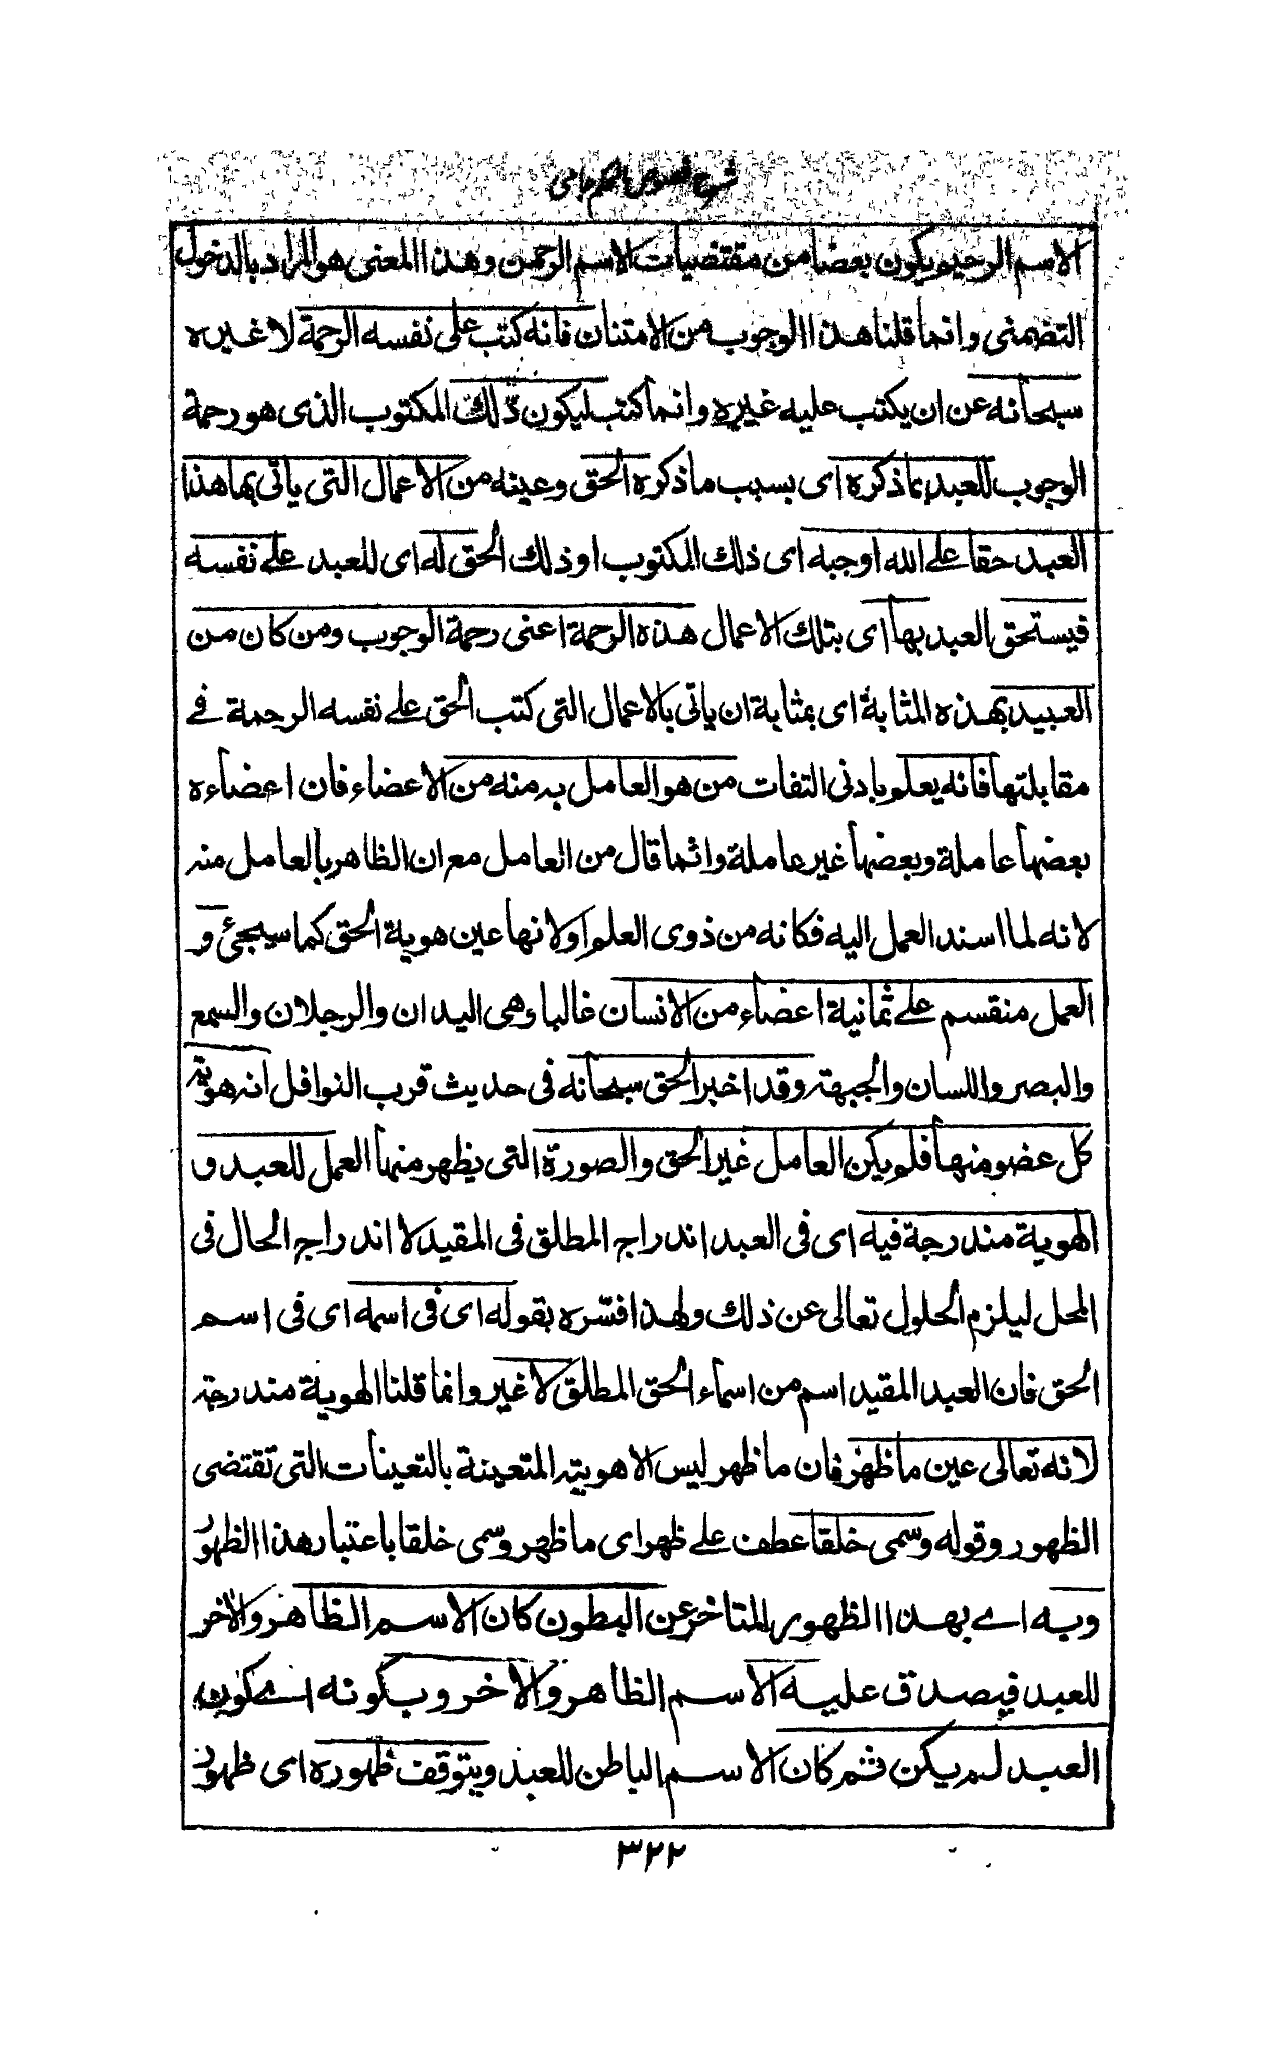 شرح فصوص الحكم جامى
الاسم الرحيم يكون بعضا من مقتضيات الاسم الرحمن وهذا المعنى هو المراد بالدخول
التضمنى وانما قلنا هذا الوجوب من الامتنان فانه كتب على نفسه الرحمة لا غيره
سبحانه عن ان يكتب عليه غيره وانما كتب ليكون ذلك المكتوب الذى هو رحمة
الوجوب للعبد بما ذكره اى بسبب ما ذكره الحق وعينه من الاعمال التى ياتى بها هذا
العبد حقا على الله اوجبه اى ذلك المكتوب او ذلك الحق له اى للعبد على نفسه
فيستحق العبد بها اى بتلك الاعمال هذه الرحمة اعنى رحمة الوجوب ومن كان من
العبيد بهذه المثابة اى بمثابة ان ياتى بالاعمال التى كتب الحق على نفسه الرحمة فى
مقابلتها فانه يعلم بادنى التفات من هو العامل به منه من الاعضاء فان اعضاءه
بعضها عاملة وبعضها غير عاملة وانما قال من العامل مع ان الظاهر بالعامل منه
لانه لما اسند العمل اليه فكانه من ذوى العلم او لانها عين هوية الحق كما سيجئ و
العمل منقسم على ثمانية اعضاء من الانسان غالبا وهى اليدان والرجلان والسمع
والبصر واللسان والجبهة وقد اخبر الحق سبحانه فى حديث قرب النوافل انه هوية
كل عضو منها فلم يكن العامل غير الحق والصورة التى يظهر منها العمل للعبد و
الهوية مندرجة فيه اى فى العبد اندراج المطلق فى المقيد لا اندراج الحال فى
المحل ليلزم الحلول تعالى عن ذلك ولهذا فسّره بقوله اى فى اسمه اى فى اسم
الحق فان العبد المقيد اسم من اسماء الحق المطلق لا غير وانما قلنا الهوية مندرجة
لانه تعالى عين ما ظهر فان ما ظهر ليس الا هويته المتعينة بالتعينات التى تقتضى
الظهور وقوله وسمى خلقا عطف على ظهر اى ما ظهر وسمى خلقا باعتبار هذا الظهور
وبه اے بهذا الظهور المتاخر عن البطون كان الاسم الظاهر والاخر
للعبد فيصدق عليه الاسم الظاهر والاخر وبكونه اے بكون
العبد لم يكن ثم كان الاسم الباطن للعبد ويتوقف ظهوره اى ظهور
٣٢٢